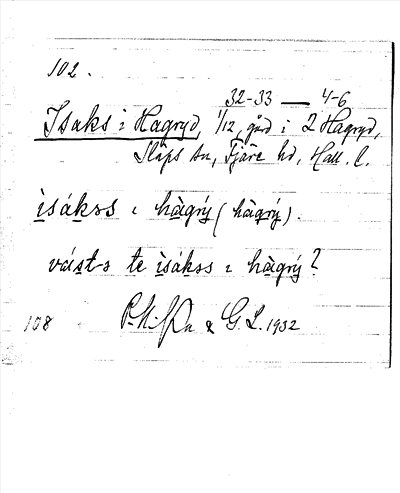 102.
32-33 — 4-6
Isaks i Hagryd, 1/12 gård i 2 Hagryd,
Släps sn, Fjäre hd, Hall. l.
ìsákss ı hàgrý (hàgrý).
vást-s te ìsákss ı hàgrý?
108 & G. L. 1932